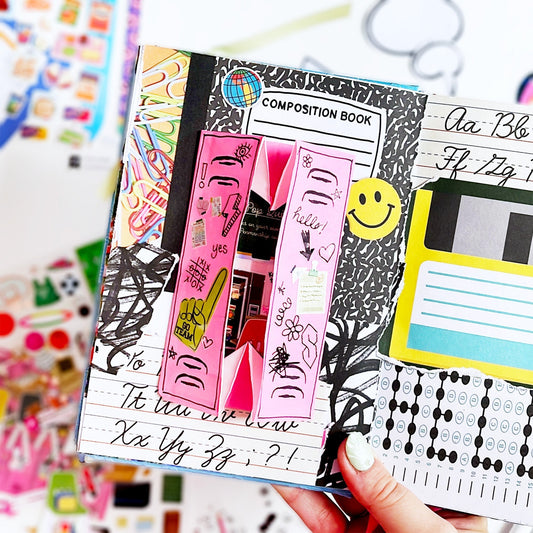 COMPOSITION BOOK
Aa Bb
Ff Gg
hello!
yes
GO
TEAM
Tt Uu Vv Ww
Xx Yy Zz ; ? !